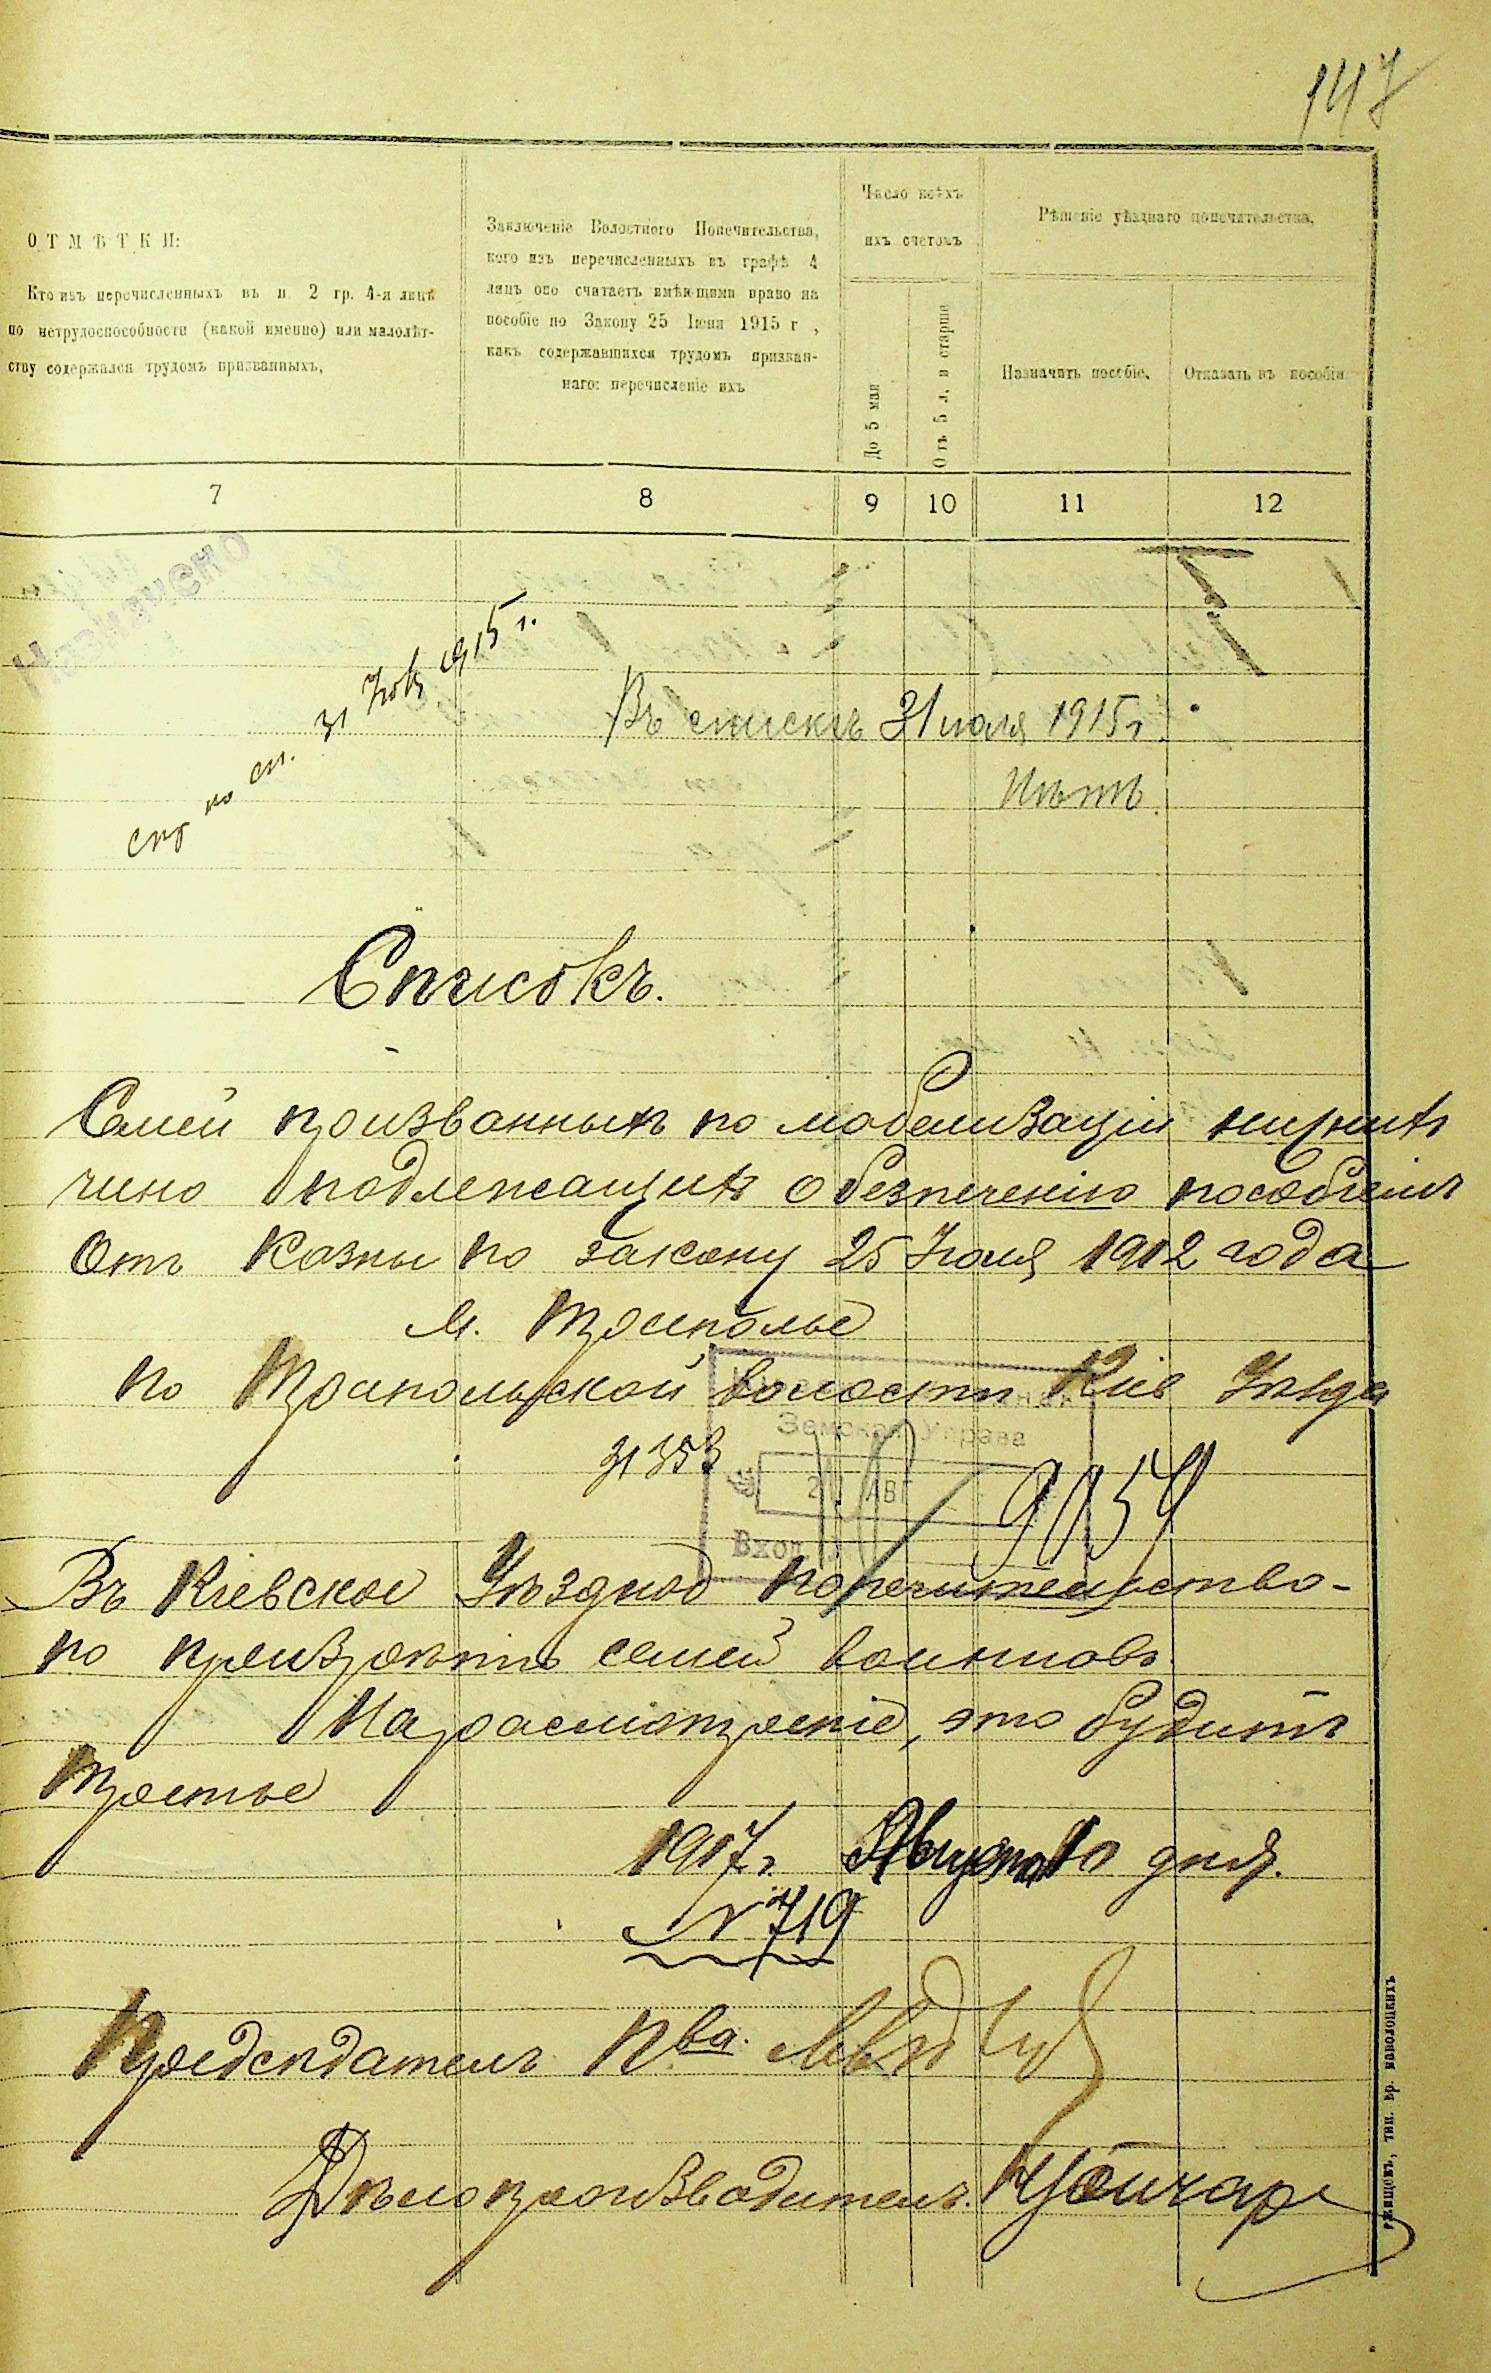 147
ОТМѢТКИ:
Кто изъ перечисленныхъ въ п 2 гр. 4-я лицъ
по нетрудоспособности (какой именно) или малолѣт-
ству содержался трудомъ призванныхъ,
Заключеніе Волостного Попечительства,
кого изъ перечисленныхъ въ графѣ 4
лицъ оно считаетъ имѣющими право на
пособіе по Закону 25 Іюня 1915 г ,
какъ содержавшихся трудомъ призван-
наго: перечисленіе ихъ
Число всѣхъ
ихъ счетомъ
До 5 мая
Отъ 5 л. и старше
Рѣшеніе уѣзднаго попечительства.
Назначить пособіе.
Отказать въ пособіи
7 8 9 10 11 12
по сп. 31 1915 г.
Въ спискѣ 31 юля 1915 г.
Нѣтъ.
Списокъ.
Семей призванныхъ по мобелизаціи нижнихъ
чино подлежащихъ обезпеченію пособіемъ
Отъ Казны по закону 25 Іюня 1912 года
м. Триполье
по Трипольской волости Кіев Уѣзда
31353
Земская Управа
20 АВГ
Вход
9154
Въ Кіевское Уѣздное попечительство-
по призрѣнію семей воиновъ.
На расмотреніе, это будитъ
третье
1917 г. Августа 10 дня.
№ 719
Предсѣдатель П-ва.
Дѣлопроизводитель.
Ржищевъ, тип. бр. Маволоцкихъ